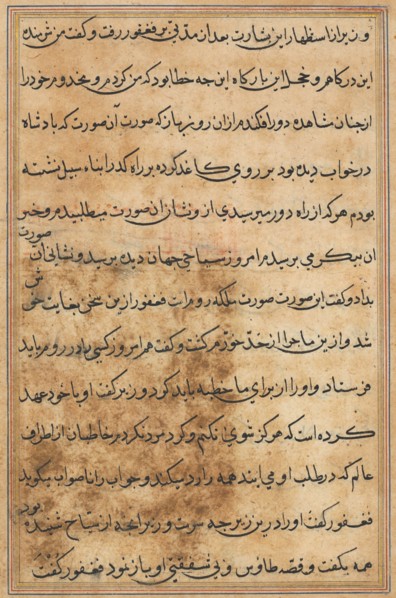 وزیر از استظهار این بشارت بعد از مدتی بر فغفور رفت و گفت من بنده
این درگاهم و خجل این بارگاه این چه خطا بود که من کردم و مخدوم خود را
از چنان شاهده دور افکندم از آن روز باز که صورت آن صورت که پادشاه
در خواب دیده بود بر روی کاغذ کرده بر راه گذر ابناء سبیل نشسته
بودم هر که از راه دور میرسیدی از و نشان آن صورت میطلبیدم و خبر
ان پیکر می پرسیدم امروز سیاحی جهان دیده برسید و نشانی آن صورت
بداد و گفت این صورت صورت ملکه روم است فغفور ازین سخن بغایت خوش
شد و ازین ماجرا از حد خرم گشت و گفت هم امروز کسی را در روم باید
فرستاد و او را از برای ما خطبه باید کرد وزیر گفت او با خود عهد
کرده است که هرگز شوی نکنم و گرد مرد نگردم خاطبان از اطراف
عالم که در طلب او می ایند همه را رد میکند و جواب را ناصواب میگوید
فغفور گفت او را درین زبر چه سرست وزیر انچه از سیاح شنیده بود
همه بگفت و قصه طاوس و بی شفقتی او باز نمود فغفور گفت